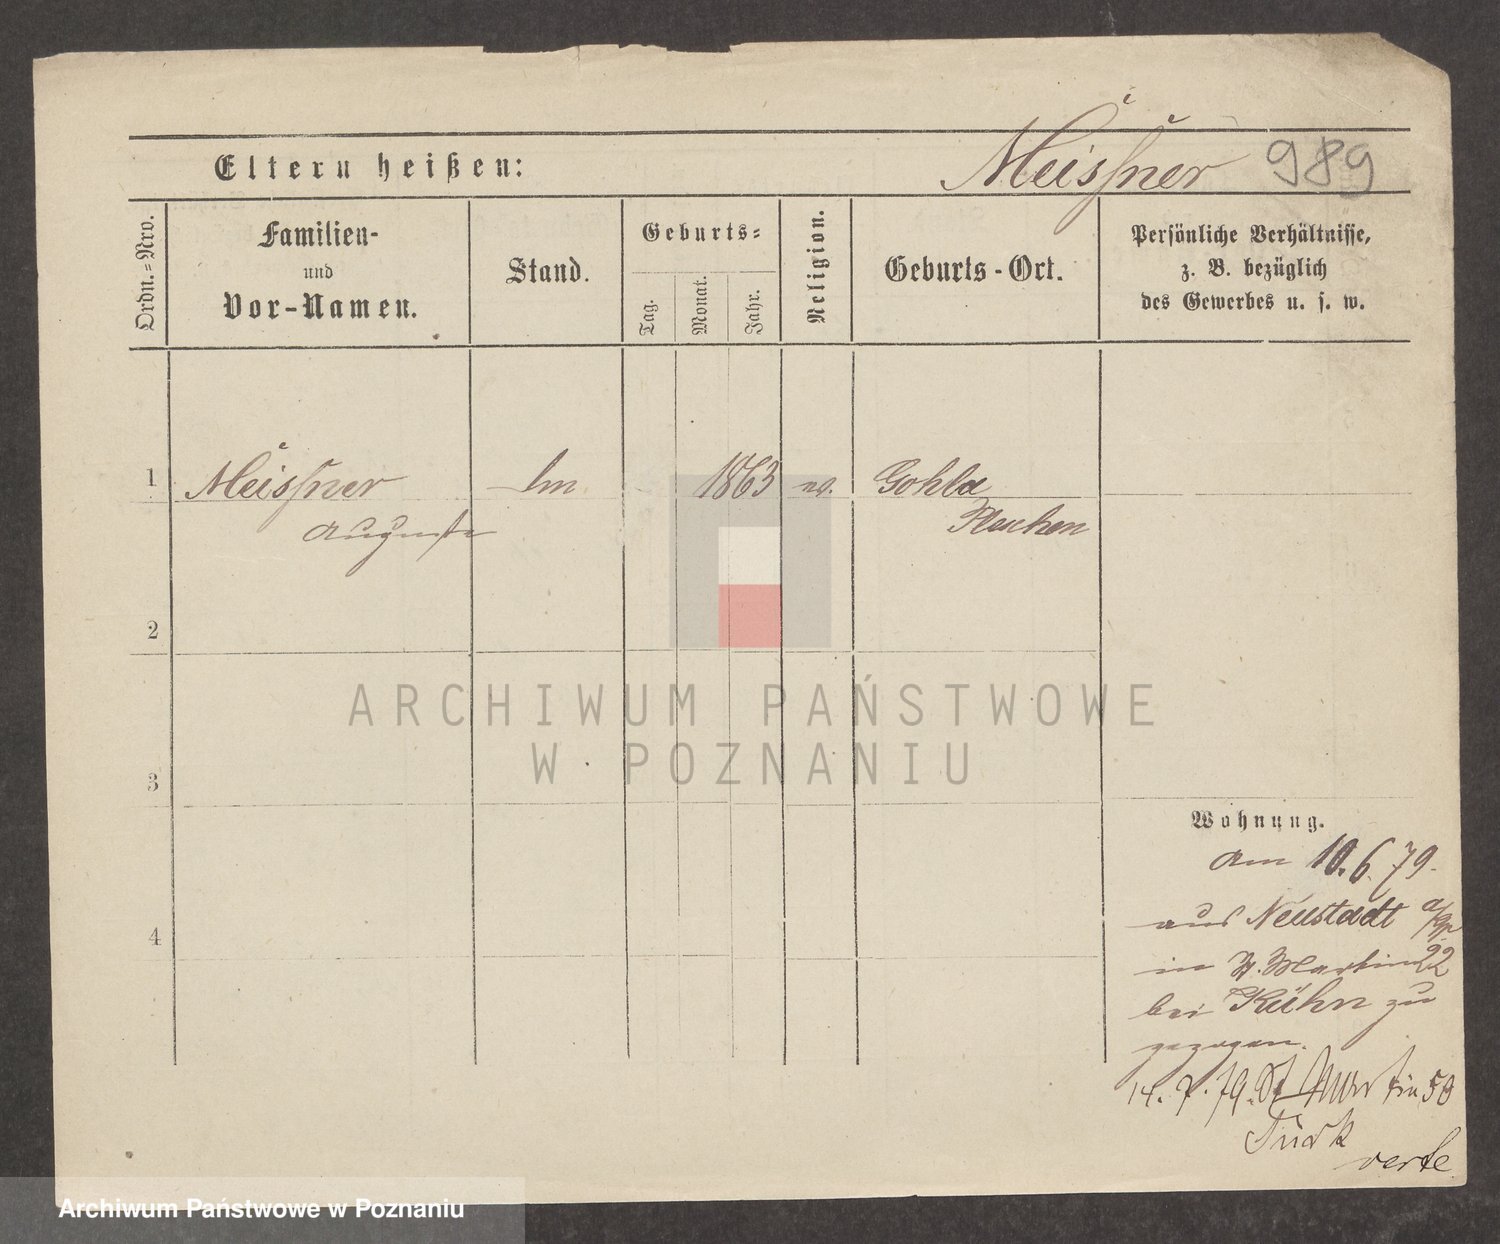 Eltern heißen:
Meissner
989
Ordn.=Nro.
Familien-
und
Vor-Namen.
Stand.
Geburts=
Tag.
Monat.
Jahr.
Religion.
Geburts-Ort.
Persönliche Verhältnisse,
z. B. bezüglich
des Gewerbes u. s. w.
1
Meissner
Auguste
1863
Pleschen
2
3
4
Wohnung.
am 10.6.79.
aus Neustadt
in St. Martin 22
bei Kühn zu
gezogen.
14. 7. 79. St Martin 58
Türk
verte
ARCHIWUM PAŃSTWOWE
W POZNANIU
Archiwum Państwowe w Poznaniu